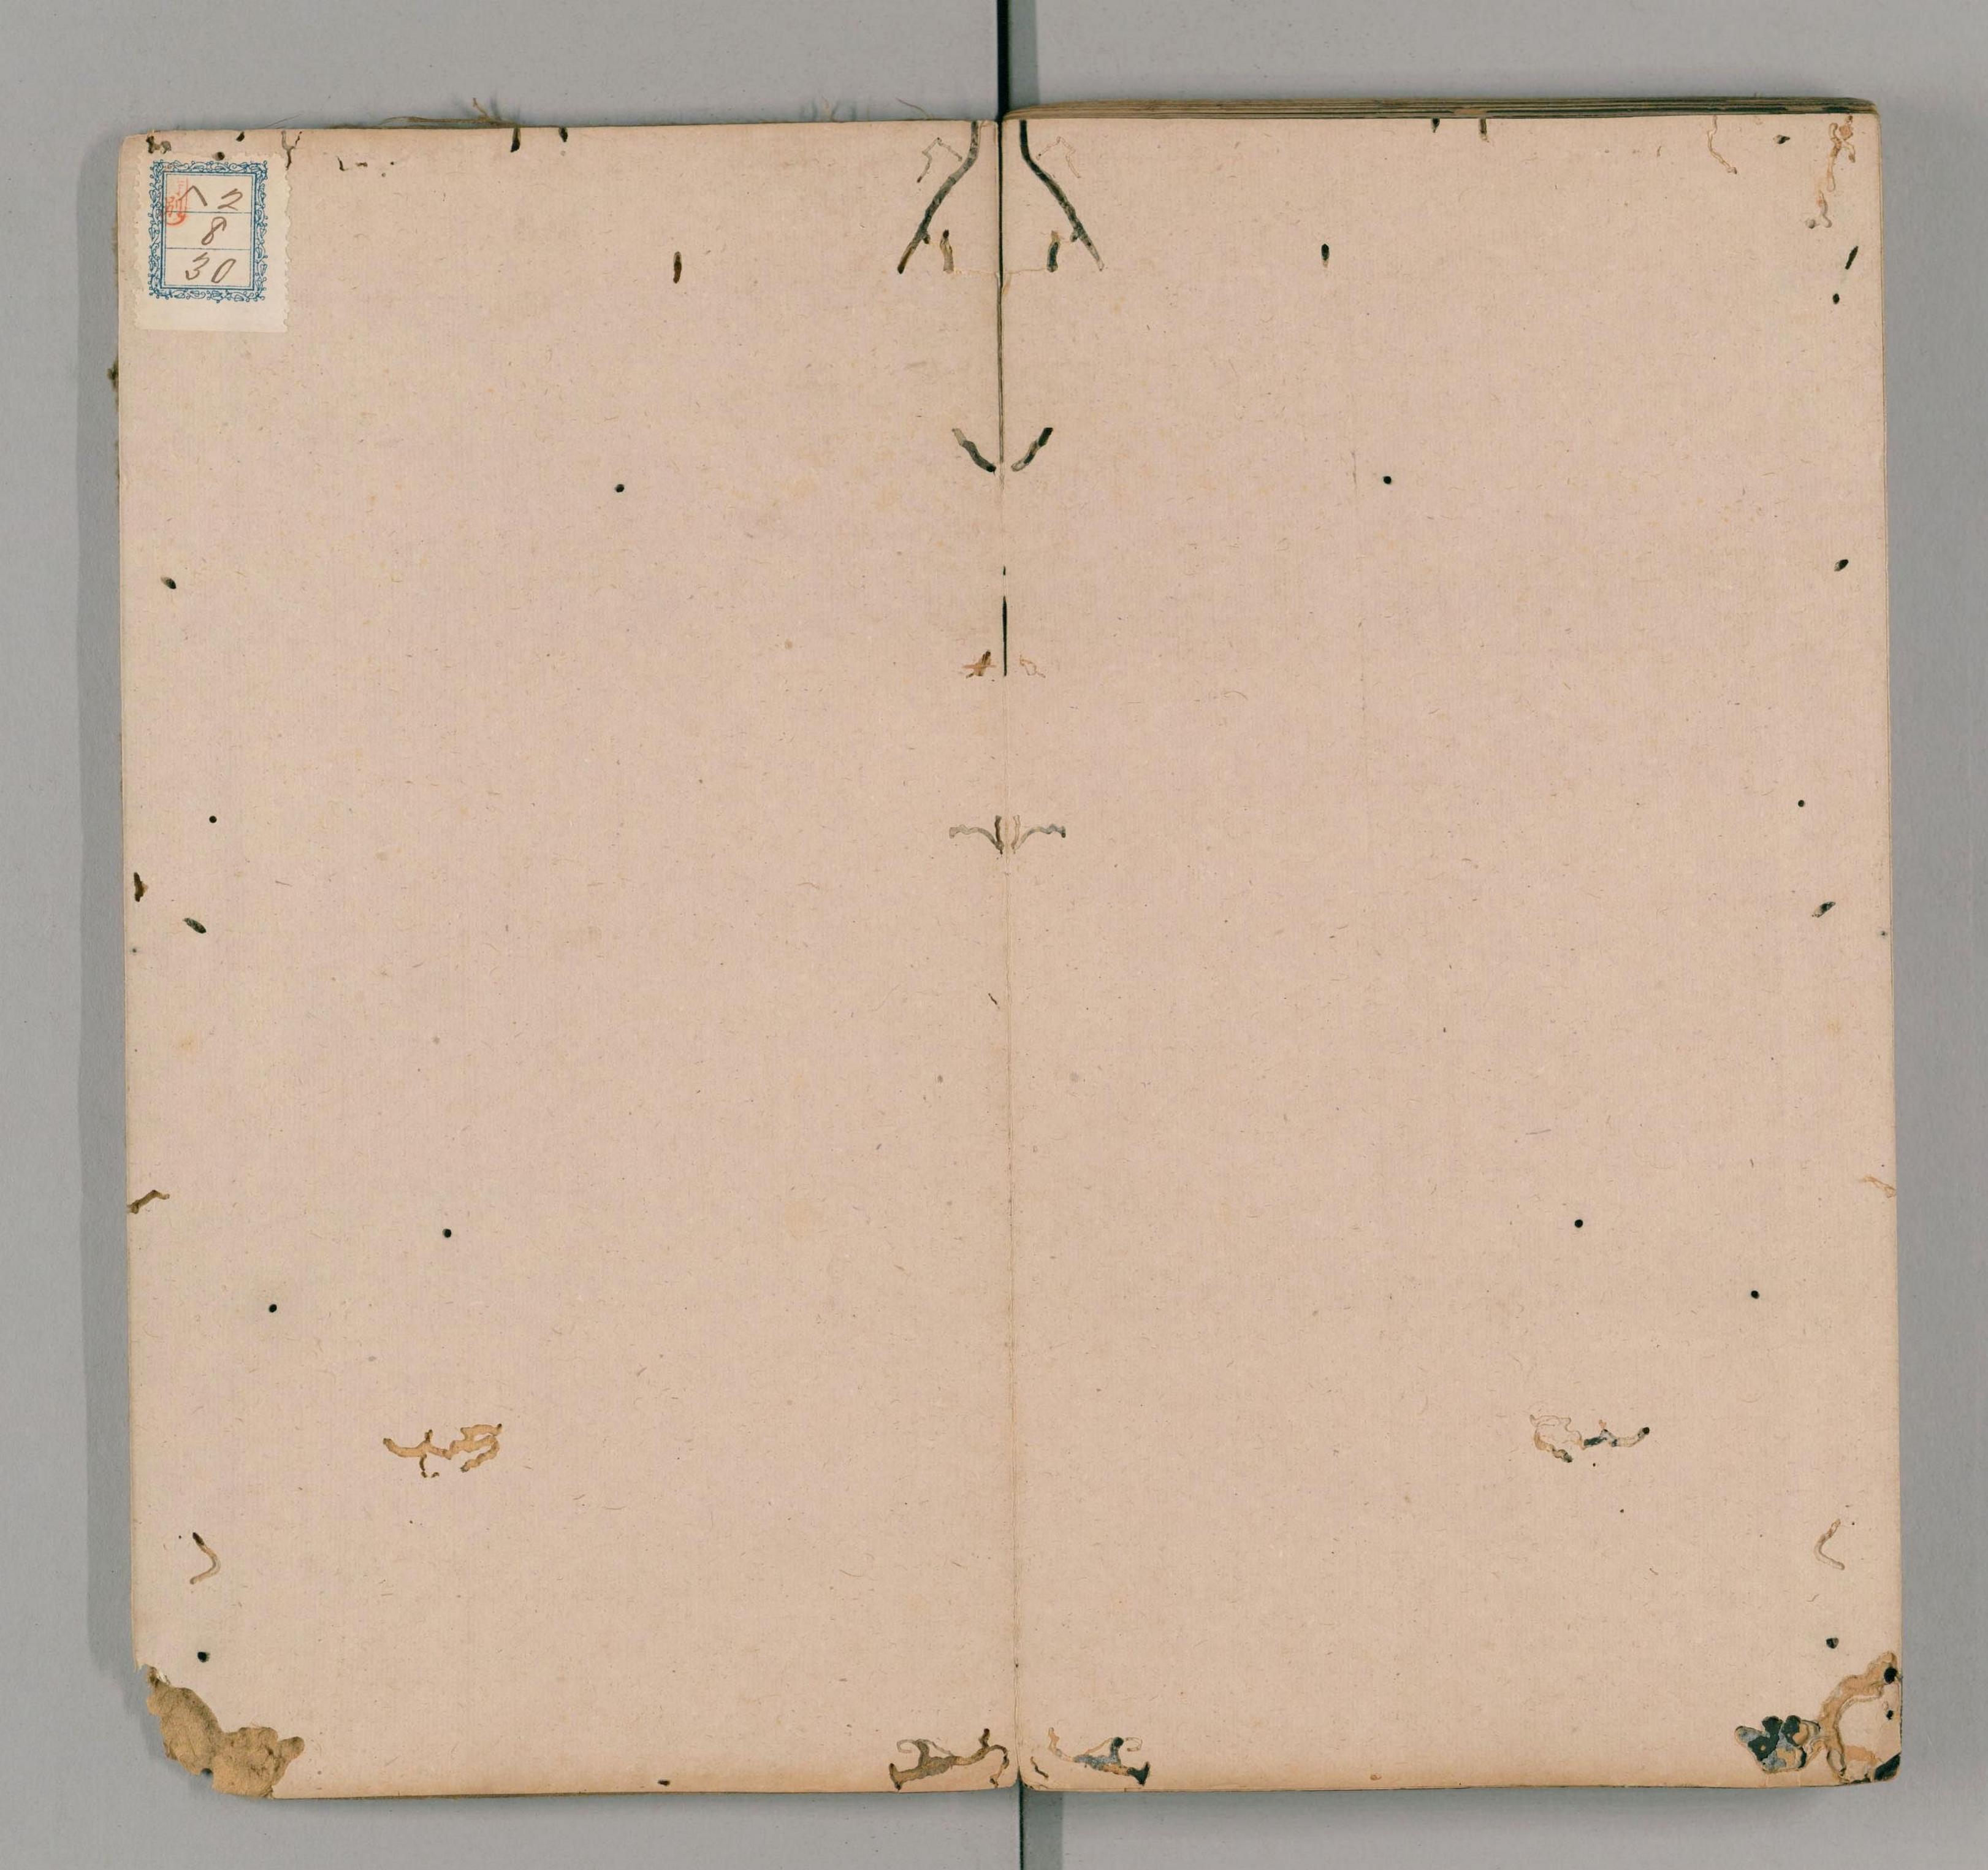 ヘ2
8
30